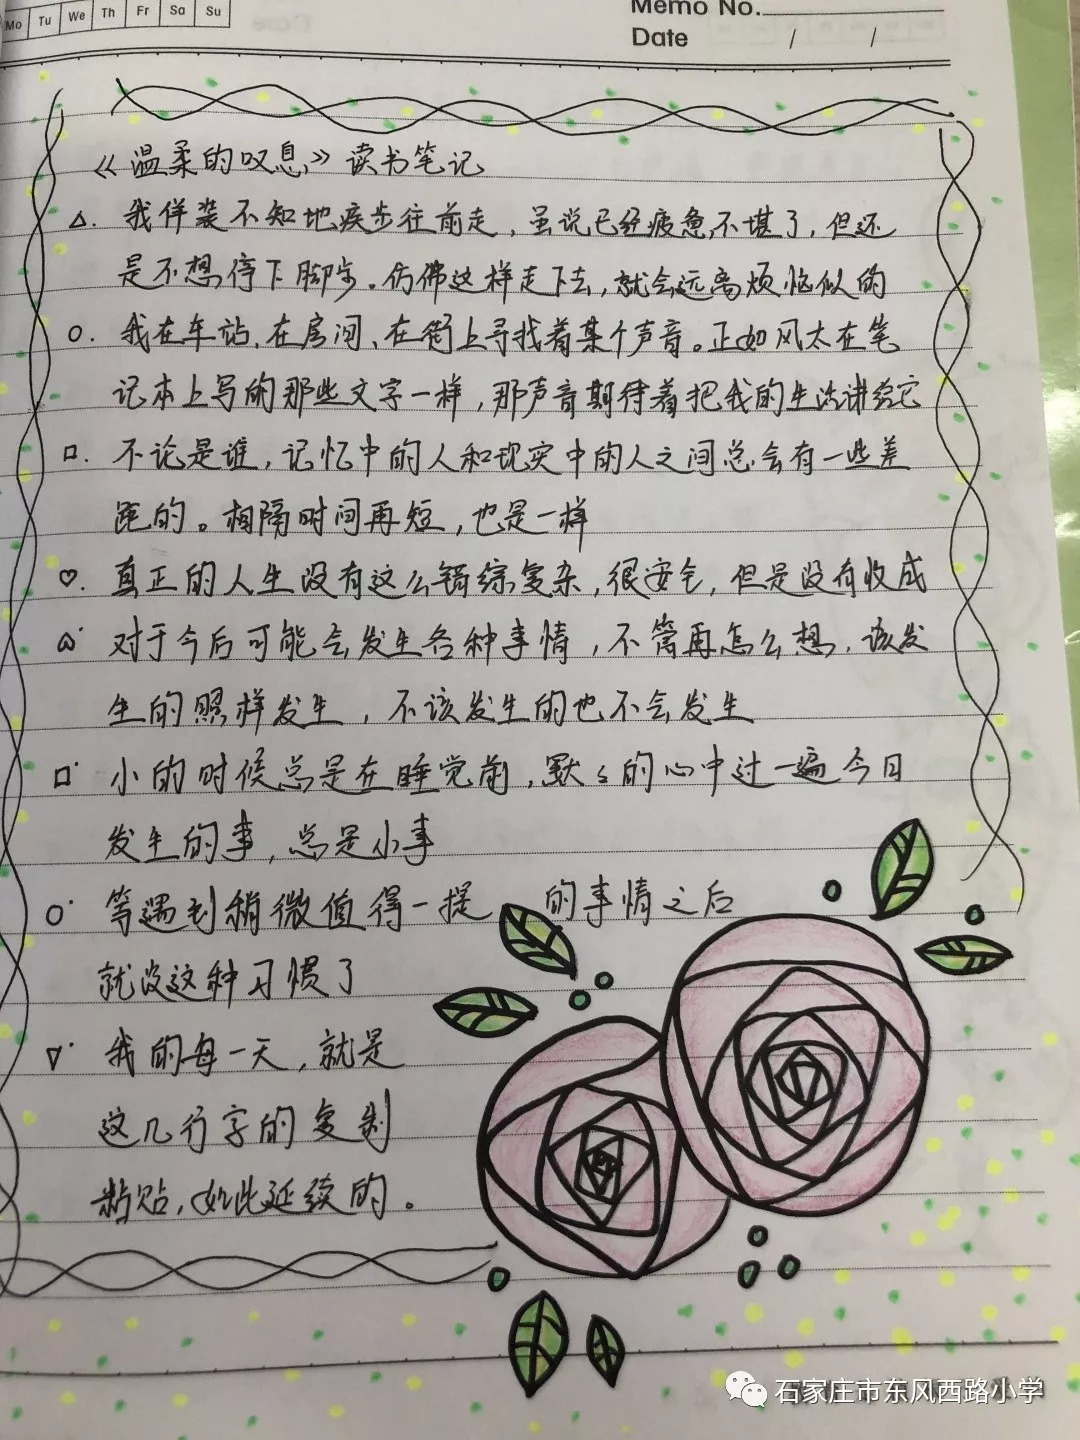 Mo Tu We Th Fr Sa Su
Memo No.
Date / /
《温柔的叹息》读书笔记
△. 我佯装不知地疾步往前走，虽说已经疲惫不堪了，但还
是不想停下脚步。仿佛这样走下去，就会远离烦恼似的
○. 我在车站、在房间、在街上寻找着某个声音。正如风太在笔
记本上写的那些文字一样，那声音期待着把我的生活讲给它
□. 不论是谁，记忆中的人和现实中的人之间总会有一些差
距的。相隔时间再短，也是一样
♡. 真正的人生没有这么错综复杂，很安全，但是没有收成
对于今后可能会发生各种事情，不管再怎么想，该发
生的照样发生，不该发生的也不会发生
□. 小的时候总是在睡觉前，默々的心中过一遍今日
发生的事，总是小事
○. 等遇到稍微值得一提 的事情之后
就没这种习惯了
▽. 我的每一天，就是
这几行字的复制
粘贴，如此延续的。
石家庄市东风西路小学